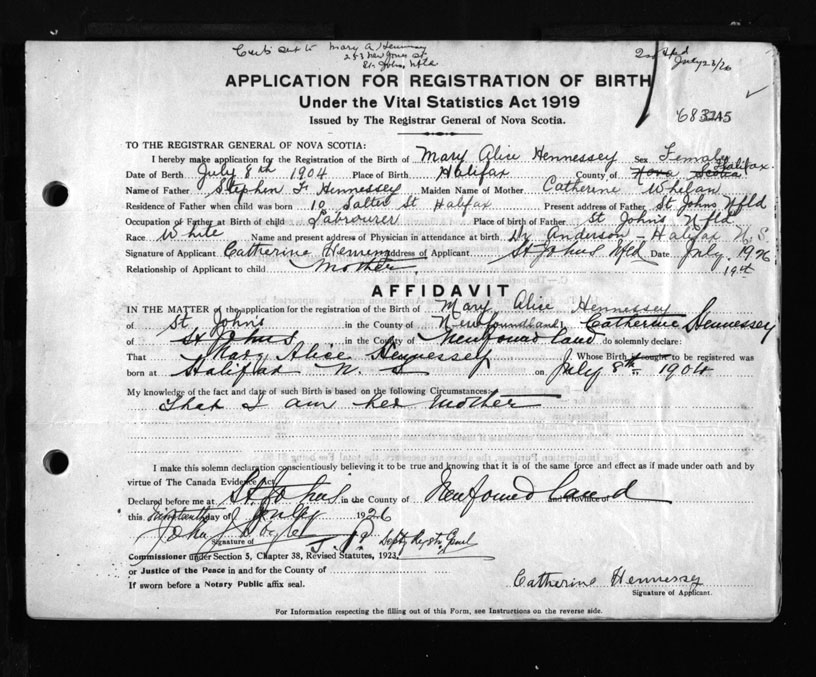 Mary A Hennessey
St. John's, Nfld
July 23/26
APPLICATION FOR REGISTRATION OF BIRTH
Under the Vital Statistics Act 1919
Issued by The Registrar General of Nova Scotia.
TO THE REGISTRAR GENERAL OF NOVA SCOTIA:
I hereby make application for the Registration of the Birth of Mary Alice Hennessey Sex Female
Halifax
Date of Birth July 8th 1904 Place of Birth Halifax County of Nova Scotia
Name of Father Stephen F Hennessey Maiden Name of Mother Catherine Whelan
Residence of Father when child was born 10 Salter St Halifax Present address of Father St Johns Nfld
Occupation of Father at Birth of child Labourer Place of birth of Father St John's Nfld
Race White Name and present address of Physician in attendance at birth Dr Anderson - Halifax N.S.
Signature of Applicant Catherine Address of Applicant St Johns Nfld Date July 1926
Relationship of Applicant to child Mother 19th
AFFIDAVIT
IN THE MATTER of the application for the registration of Birth of Mary Alice Hennessey
of St John's in the County of Newfoundland, Catherine Hennessey
of St Johns in the County of Newfoundland do solemnly declare:
That Mary Alice Hennessey Whose Birth sought to be registered was
born at Halifax N. S on July 8th 1904
My knowledge of the fact and date of such Birth is based on the following Circumstances:
That I am her mother
I make this solemn declaration conscientiously believing it to be true and knowing that it is of the same force and effect as if made under oath and by
virtue of The Canada Evidence Act.
Declared before me at St. Johns in the County of Newfoundland and Province of
this nineteenth day of July 1926
Signature of
Commissioner under Section 5, Chapter 38, Revised Statutes, 1923
or Justice of the Peace in and for the County of
If sworn before a Notary Public affix seal.
Catherine Hennessey
Signature of Applicant.
For Information respecting the filling out of this Form, see Instructions on the reverse side.